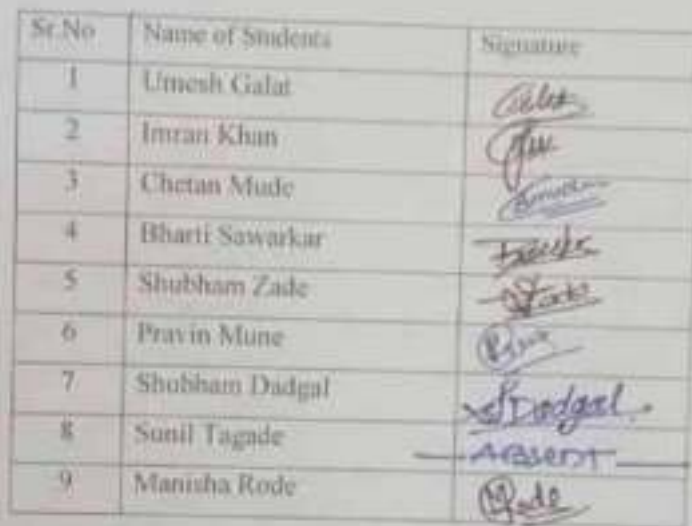 Sr.No Name of Students Signature
1 Umesh Galat
2 Imran Khan
3 Chetan Mude
4 Bharti Sawarkar
5 Shubham Zade
6 Pravin Mune
7 Shubham Dadgal SDadgal
8 Sunil Tagade ABSENT
9 Manisha Rode Rode